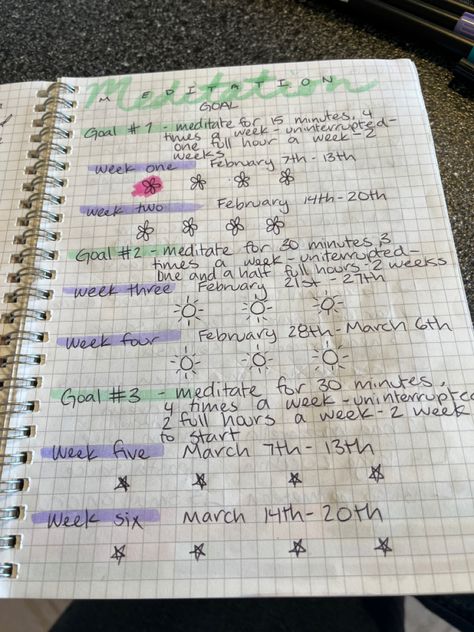 Meditation
MEDITATION
GOAL
Goal #1 - meditate for 15 minutes, 4
times a week - uninterrupted -
one full hour a week - 2
weeks
week one February 7th - 13th
week two February 14th - 20th
Goal #2 - meditate for 30 minutes, 3
times a week - uninterrupted -
one and a half full hours - 2 weeks
week three February 21st - 27th
week four February 28th - March 6th
Goal #3 - meditate for 30 minutes,
4 times a week - uninterrupted
2 full hours a week - 2 week
to start
Week five March 7th - 13th
Week six March 14th - 20th